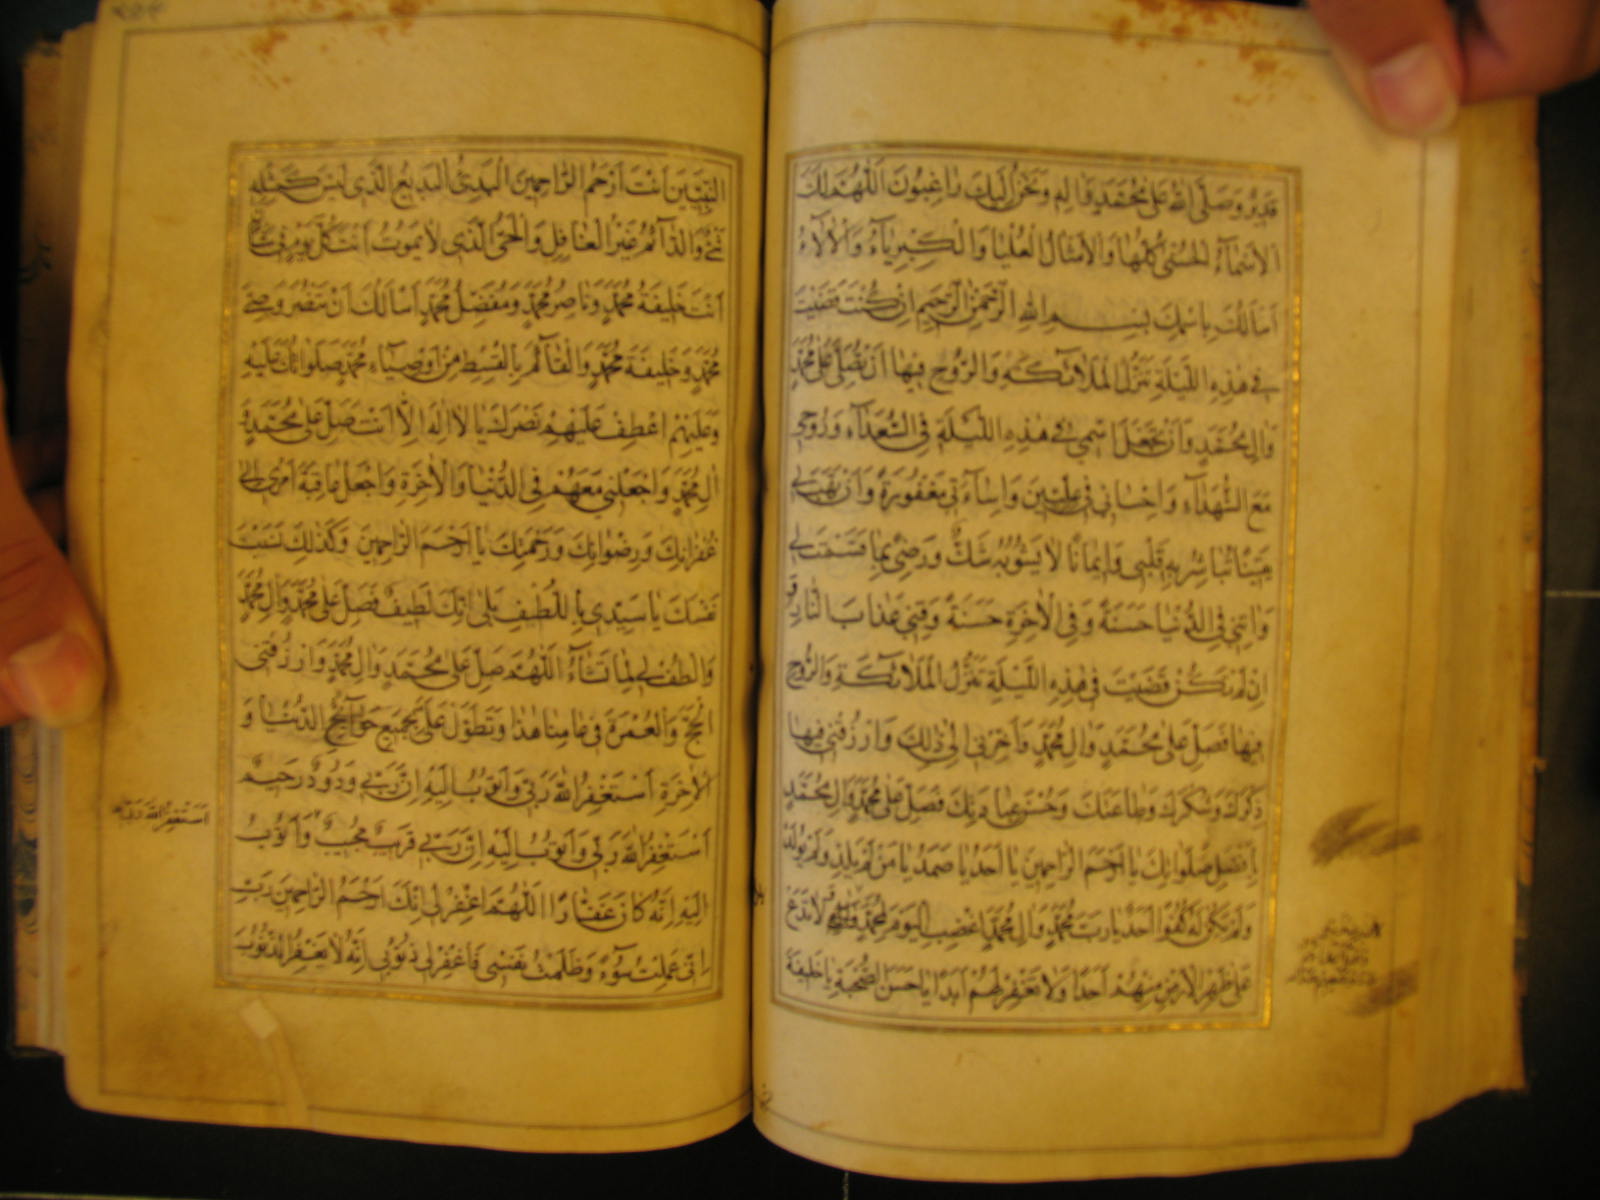 قَدِيرٌ وَصَلَّى اللهُ عَلَى مُحَمَّدٍ وَالِهِ وَنَحْنُ اِلَيْكَ رَاغِبُونَ اَللّٰهُمَّ لَكَ
الْاَسْمَاءُ الْحُسْنٰى كُلُّهَا وَالْاَمْثَالُ الْعُلْيَا وَالْكِبْرِيَاءُ وَالْاٰلَاءُ
اَسْاَلُكَ بِاسْمِكَ بِسْمِ اللهِ الرَّحْمٰنِ الرَّحِيمِ اِنْ كُنْتَ قَضَيْتَ
فِي هٰذِهِ اللَّيْلَةِ تَنَزُّلَ الْمَلَائِكَةِ وَالرُّوحِ فِيهَا اَنْ تُصَلِّيَ عَلَى مُحَمَّدٍ
وَالِ مُحَمَّدٍ وَاَنْ تَجْعَلَ اسْمِي فِي هٰذِهِ اللَّيْلَةِ فِي السُّعَدَاءِ وَرُوحِي
مَعَ الشُّهَدَاءِ وَاِحْسَانِي فِي عِلِّيِّينَ وَاِسَاءَتِي مَغْفُورَةً وَاَنْ تَهَبَ لِي
يَقِينًا تُبَاشِرُ بِهِ قَلْبِي وَاِيمَانًا لَا يَشُوبُهُ شَكٌّ وَرَضِّنِي بِمَا قَسَمْتَ لِي
وَاٰتِنِي فِي الدُّنْيَا حَسَنَةً وَفِي الْاٰخِرَةِ حَسَنَةً وَقِنِي عَذَابَ النَّارِ وَ
اِنْ لَمْ تَكُنْ قَضَيْتَ فِي هٰذِهِ اللَّيْلَةِ تَنَزُّلَ الْمَلَائِكَةِ وَالرُّوحِ
فِيهَا فَصَلِّ عَلَى مُحَمَّدٍ وَالِ مُحَمَّدٍ وَاَخِّرْنِي اِلَى ذٰلِكَ وَارْزُقْنِي فِيهَا
ذِكْرَكَ وَشُكْرَكَ وَطَاعَتَكَ وَحُسْنَ عِبَادَتِكَ فَصَلِّ عَلَى مُحَمَّدٍ وَالِ مُحَمَّدٍ
بِاَفْضَلِ صَلَوَاتِكَ يَا اَرْحَمَ الرَّاحِمِينَ يَا اَحَدُ يَا صَمَدُ يَا مَنْ لَمْ يَلِدْ وَلَمْ يُولَدْ
وَلَمْ يَكُنْ لَهُ كُفُوًا اَحَدٌ يَا رَبَّ مُحَمَّدٍ وَالِ مُحَمَّدٍ اغْضَبِ الْيَوْمَ لِمُحَمَّدٍ لَا تَدَعْ
عَلَى ظَهْرِ الْاَرْضِ مِنْهُمْ اَحَدًا وَلَا تَغْفِرْ لَهُمْ اَبَدًا يَا حَسَنَ الصُّحْبَةِ يَا خَلِيفَةَ
النَّبِيِّينَ اَنْتَ اَرْحَمُ الرَّاحِمِينَ الْبَدِيءُ الْبَدِيعُ الَّذِي لَيْسَ كَمِثْلِهِ
شَيْءٌ وَالدَّائِمُ غَيْرُ الْغَافِلِ وَالْحَيُّ الَّذِي لَا يَمُوتُ اَنْتَ كُلَّ يَوْمٍ فِي شَأْنٍ
اَنْتَ خَلِيفَةُ مُحَمَّدٍ وَنَاصِرُ مُحَمَّدٍ وَمُفَضِّلُ مُحَمَّدٍ اَسْاَلُكَ اَنْ تَنْصُرَ وَصِيَّ
مُحَمَّدٍ وَخَلِيفَةَ مُحَمَّدٍ وَالْقَائِمَ بِالْقِسْطِ مِنْ اَوْصِيَاءِ مُحَمَّدٍ صَلَوَاتُكَ عَلَيْهِ
وَعَلَيْهِمْ اعْطِفْ عَلَيْهِمْ نَصْرَكَ يَا لَا اِلٰهَ اِلَّا اَنْتَ صَلِّ عَلَى مُحَمَّدٍ وَ
اٰلِ مُحَمَّدٍ وَاجْعَلْنِي مَعَهُمْ فِي الدُّنْيَا وَالْاٰخِرَةِ وَاجْعَلْ عَاقِبَةَ اَمْرِي اِلَى
غُفْرَانِكَ وَرِضْوَانِكَ وَرَحْمَتِكَ يَا اَرْحَمَ الرَّاحِمِينَ وَكَذٰلِكَ نَسَبْتَ
نَفْسَكَ يَا سَيِّدِي بِاللُّطْفِ بَلٰى اِنَّكَ لَطِيفٌ فَصَلِّ عَلَى مُحَمَّدٍ وَالِ مُحَمَّدٍ
وَالْطُفْ لِي لِمَا تَشَاءُ اَللّٰهُمَّ صَلِّ عَلَى مُحَمَّدٍ وَالِ مُحَمَّدٍ وَارْزُقْنِي
الْحَجَّ وَالْعُمْرَةَ فِي عَامِنَا هٰذَا وَتَطَوَّلْ عَلَيَّ بِجَمِيعِ حَوَائِجِي الدُّنْيَا وَ
الْاٰخِرَةِ اَسْتَغْفِرُ اللهَ رَبِّي وَاَتُوبُ اِلَيْهِ اِنَّ رَبِّي وَدُودٌ رَحِيمٌ
اَسْتَغْفِرُ اللهَ رَبِّي وَاَتُوبُ اِلَيْهِ اِنَّ رَبِّي قَرِيبٌ مُجِيبٌ وَاَتُوبُ
اِلَيْهِ اِنَّهُ كَانَ غَفَّارًا اَللّٰهُمَّ اغْفِرْ لِي اِنَّكَ اَرْحَمُ الرَّاحِمِينَ رَبِّ
اِنِّي عَمِلْتُ سُوءً وَظَلَمْتُ نَفْسِي فَاغْفِرْ لِي ذُنُوبِي اِنَّهُ لَا يَغْفِرُ الذُّنُوبَ
اَسْتَغْفِرُ اللهَ رَبِّي